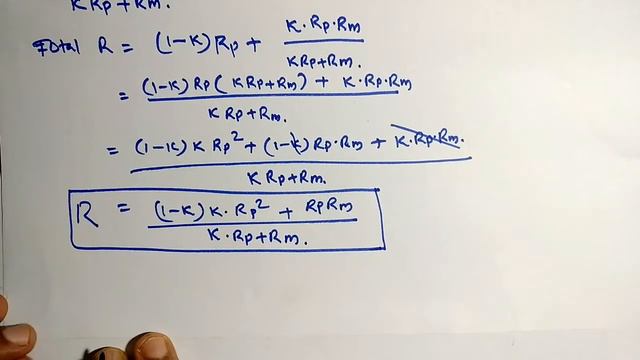 K Rp + Rm.
Total R = (1-K) Rp + K·Rp·Rm / KRp+Rm.
= (1-K) Rp (KRp+Rm) + K·Rp·Rm / K Rp+Rm.
= (1-K) K Rp² + (1-K) Rp·Rm + K·Rp·Rm. / K Rp+Rm.
R = (1-K) K· Rp² + RpRm / K·Rp+Rm.